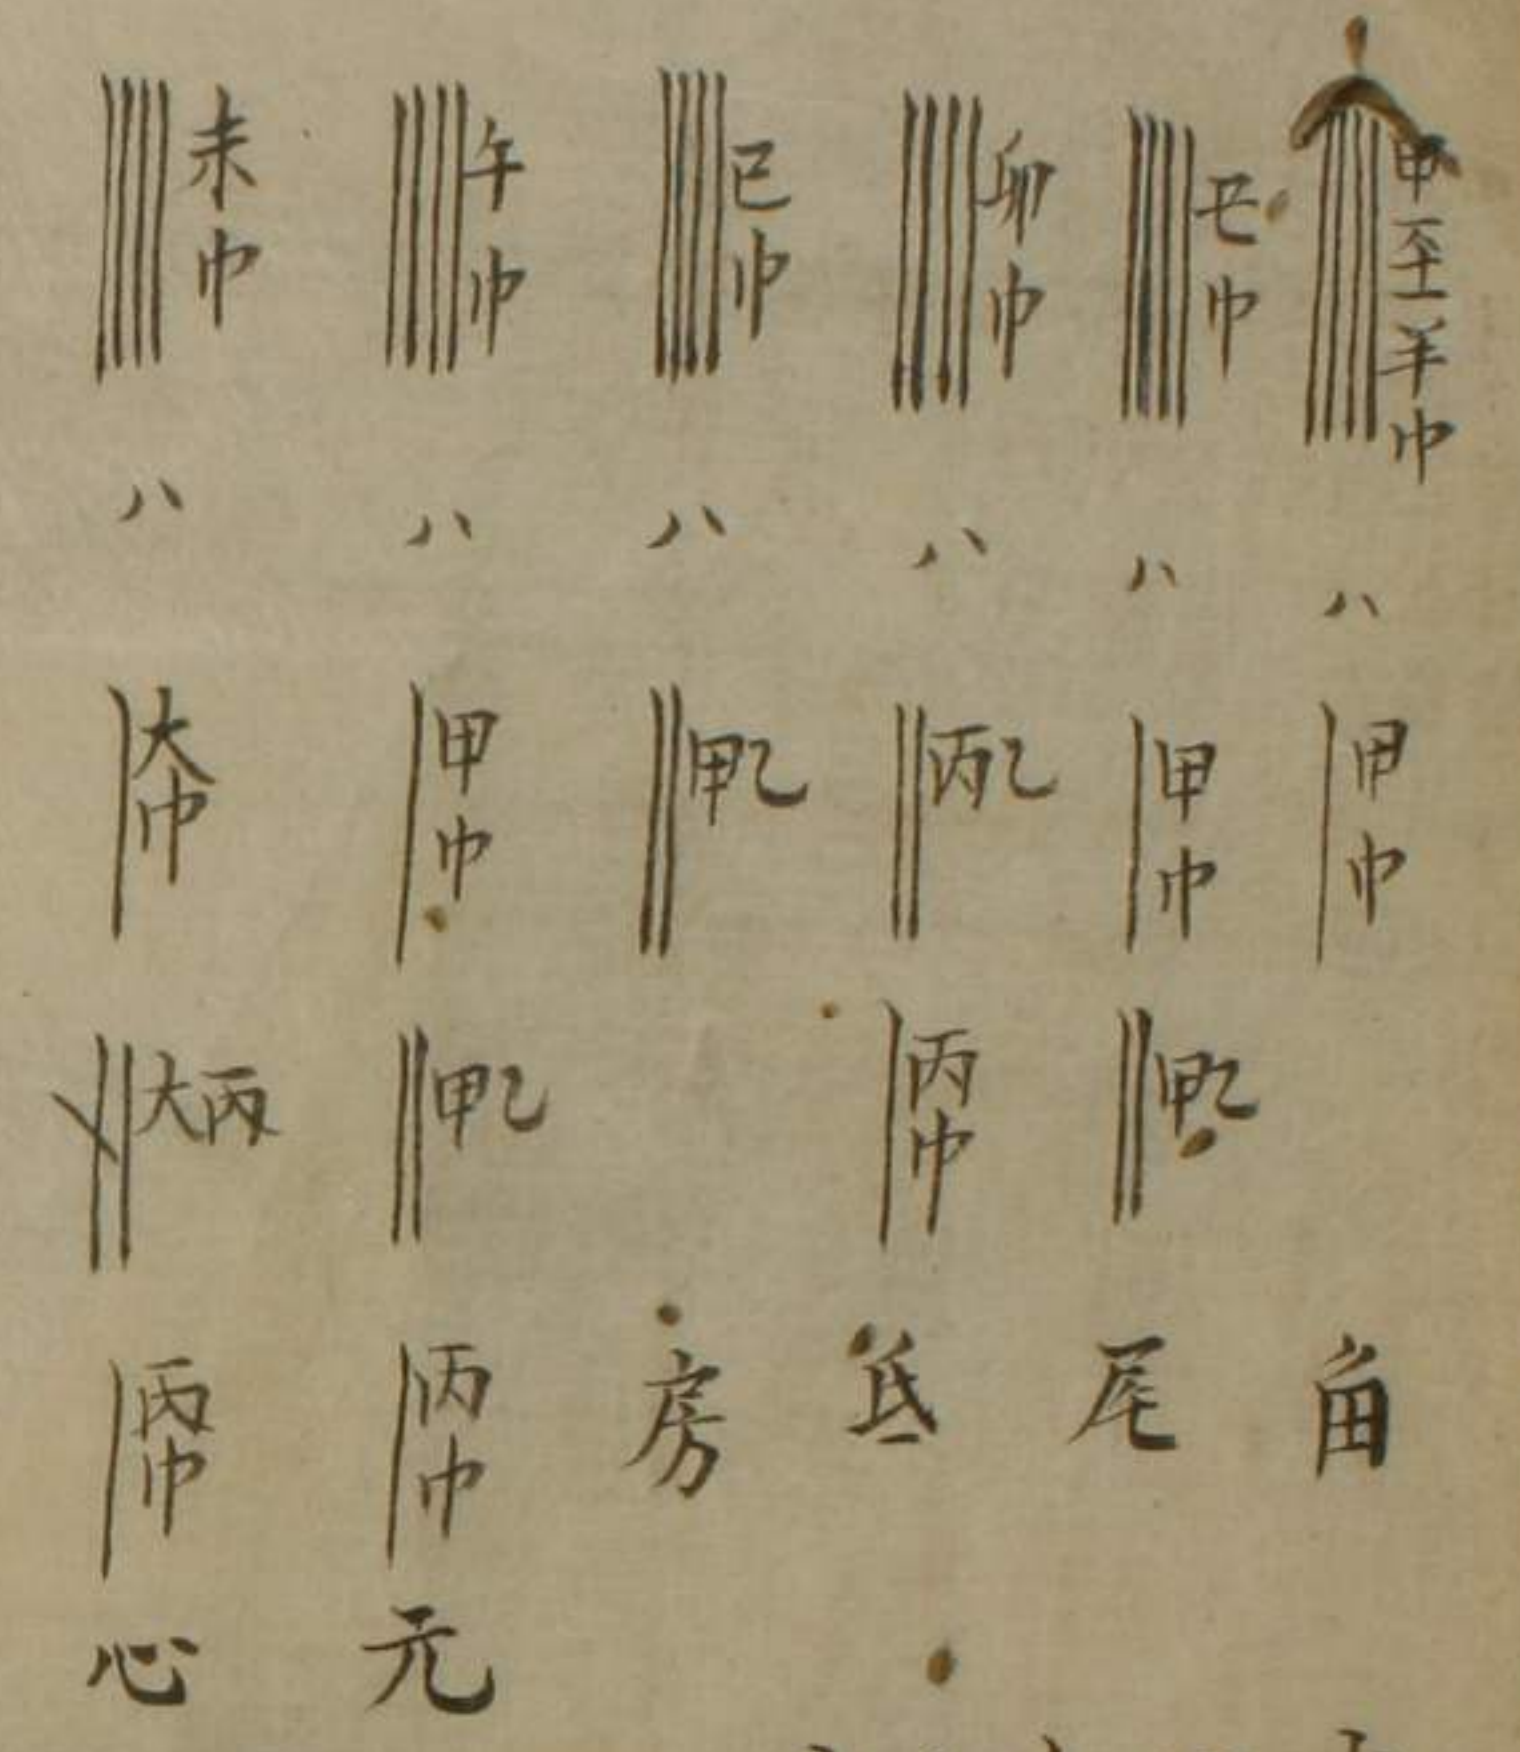 甲至羊巾 八 甲巾 角
丑巾 八 甲巾 甲乙 尾
卯巾 八 丙乙 丙巾 氐
巳巾 八 甲乙 房
午巾 八 甲巾 甲乙 丙巾 亢
未巾 八 大巾 大丙 丙巾 心